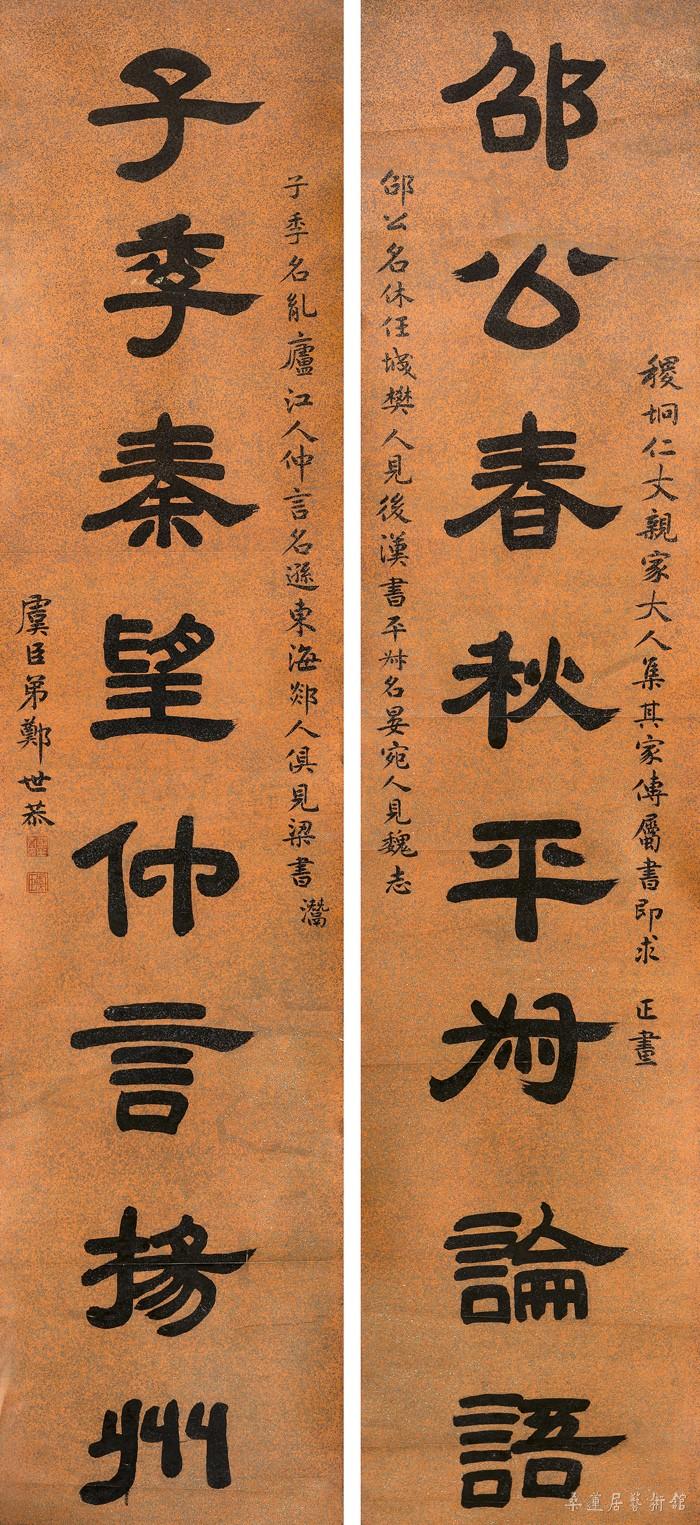 稷垌仁丈親家大人集其家傳屬書即求　正畫
邵公春秋平叔論語
邵公名休任城樊人見後漢書平叔名晏宛人見魏志
子季名胤廬江人仲言名遜東海郯人俱見梁書
子季秦望仲言揚州
虞臣弟鄭世恭
桑蓮居藝術館